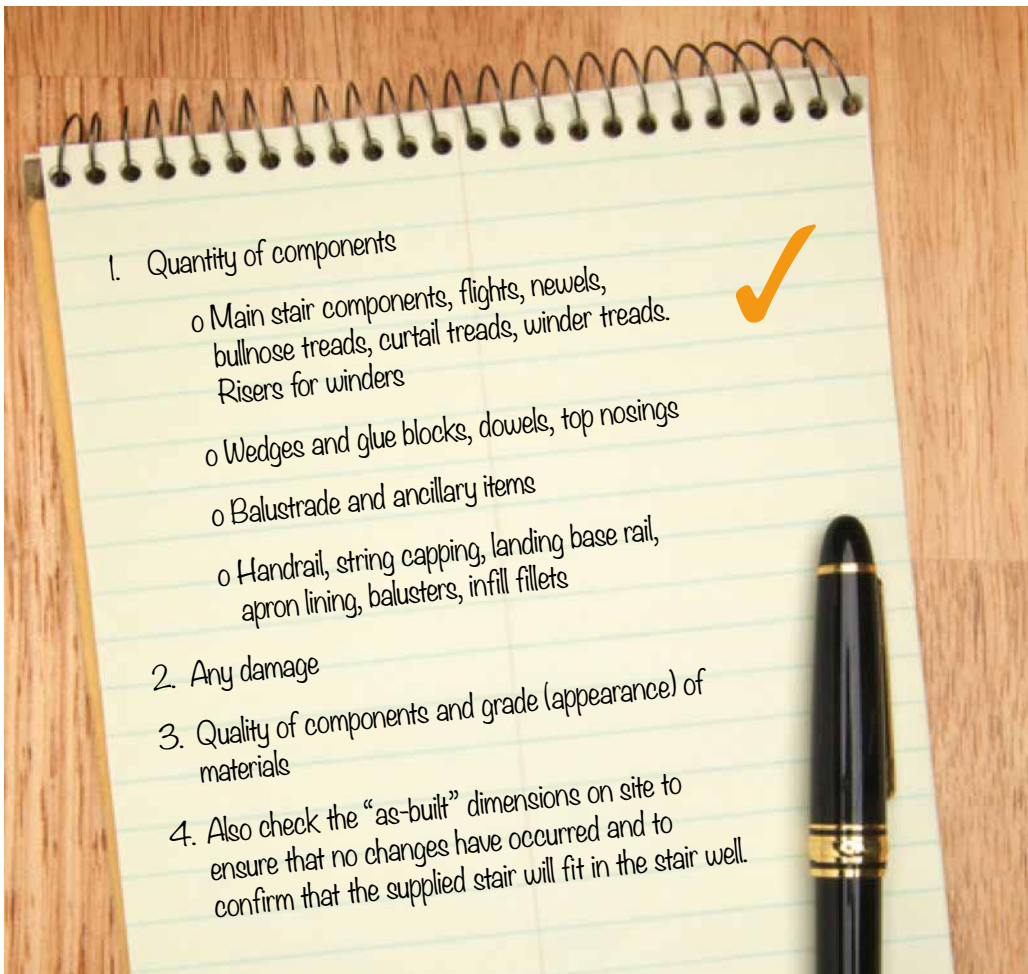 1. Quantity of components
o Main stair components, flights, newels,
bullnose treads, curtail treads, winder treads.
Risers for winders
o Wedges and glue blocks, dowels, top nosings
o Balustrade and ancillary items
o Handrail, string capping, landing base rail,
apron lining, balusters, infill fillets
2. Any damage
3. Quality of components and grade (appearance) of
materials
4. Also check the “as-built” dimensions on site to
ensure that no changes have occurred and to
confirm that the supplied stair will fit in the stair well.